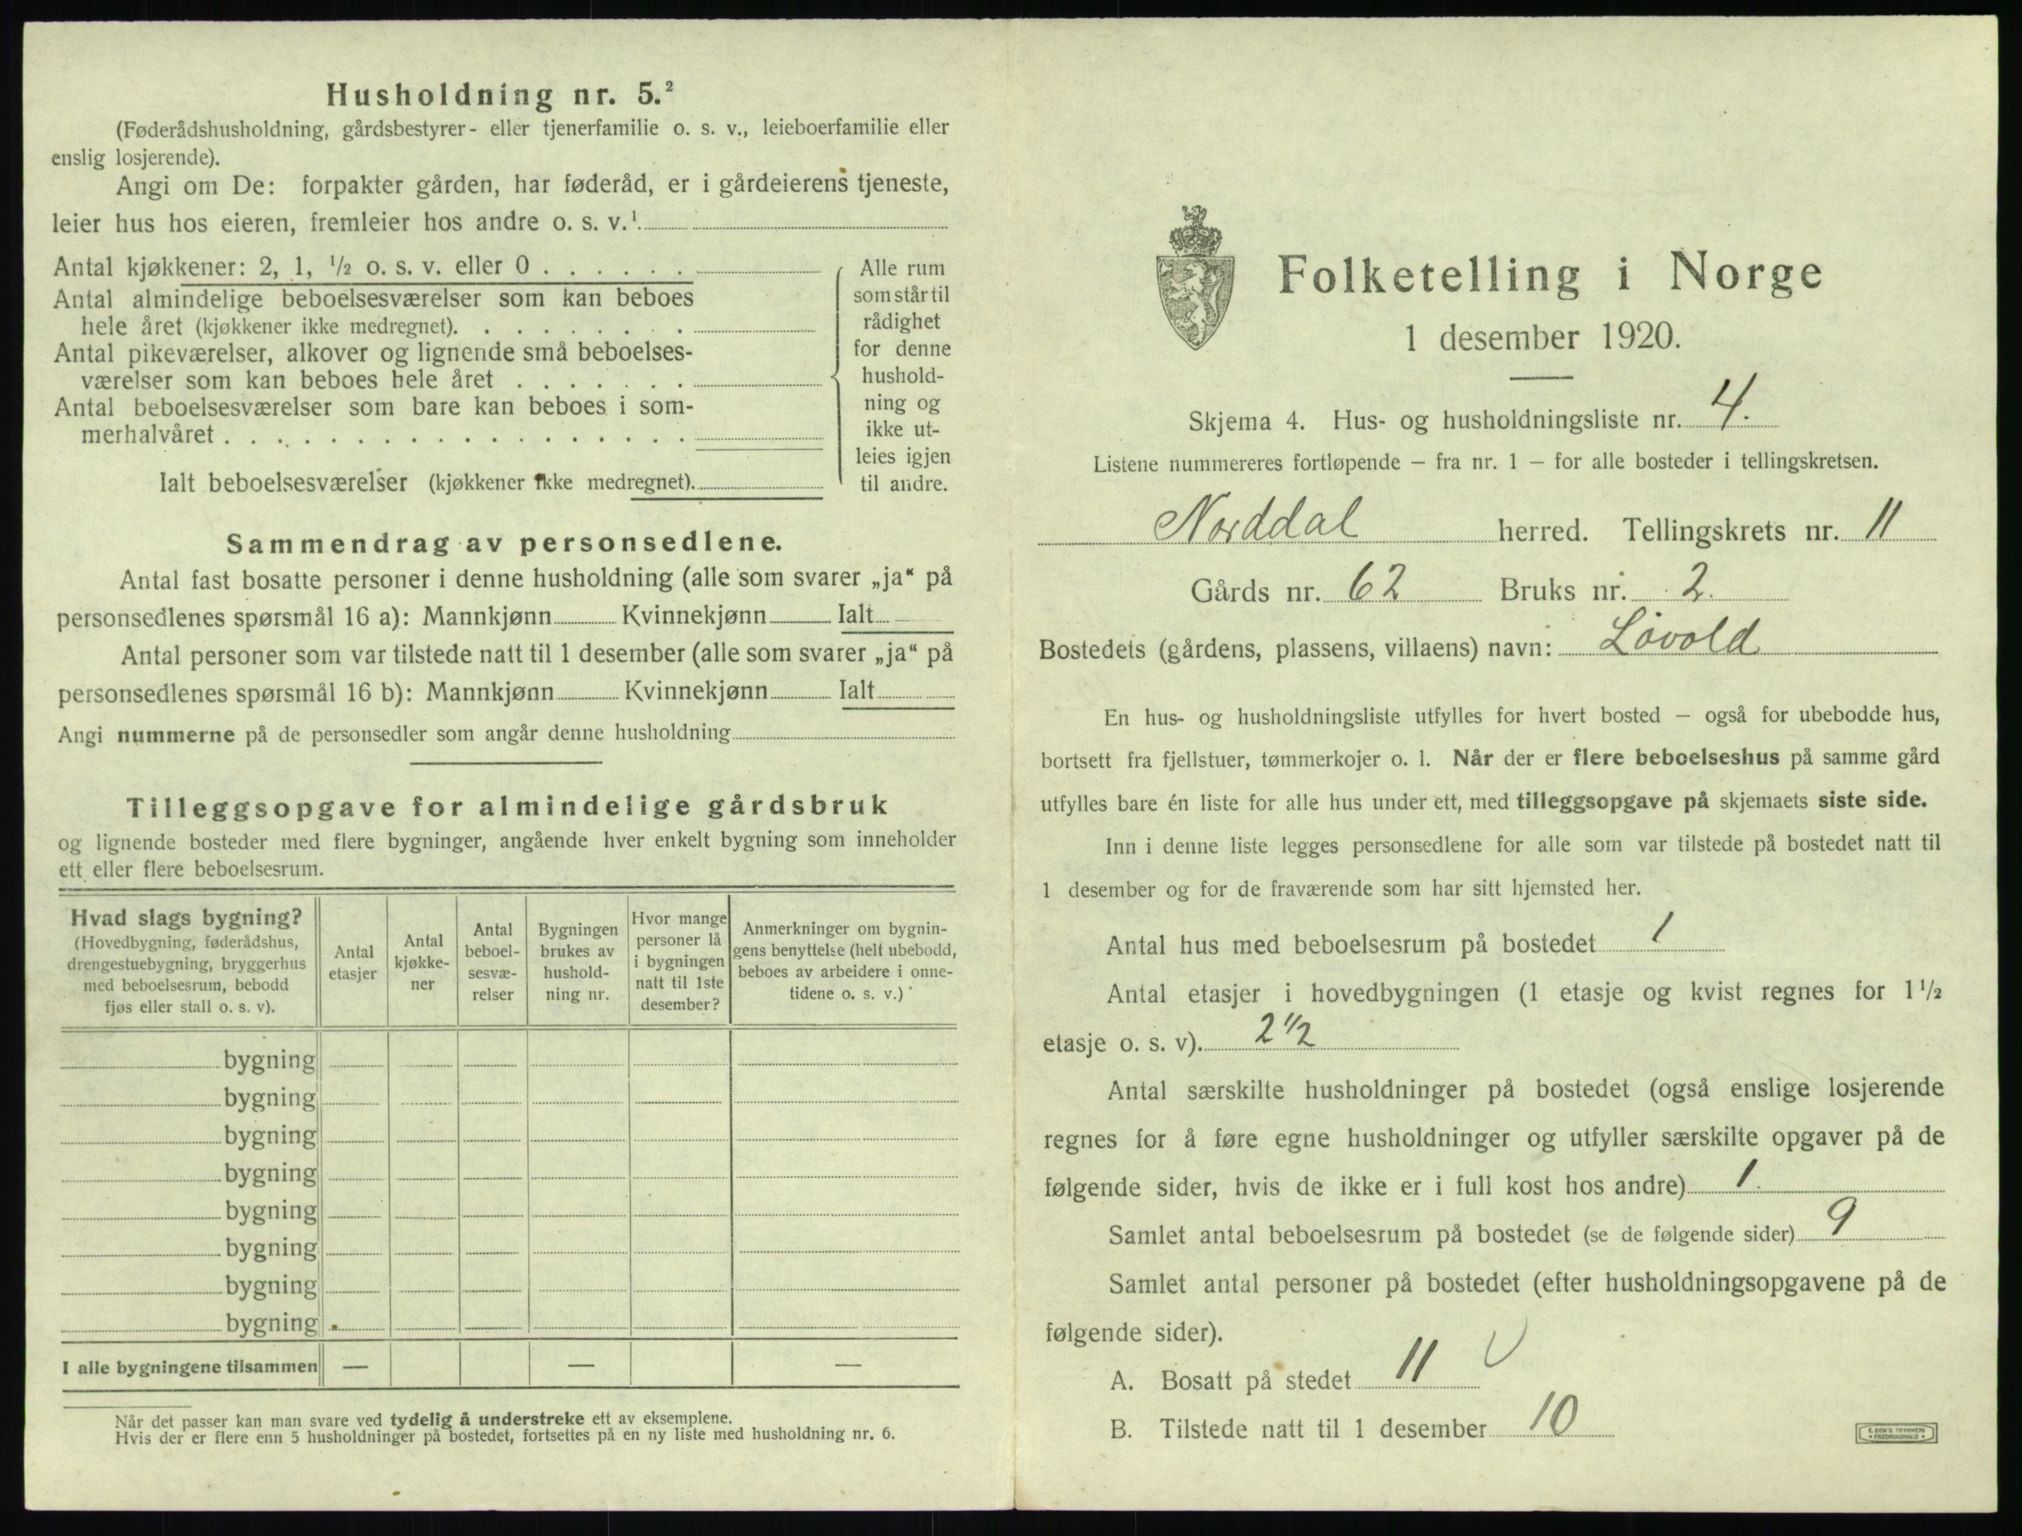 Husholdning nr. 5.²
(Føderådshusholdning, gårdsbestyrer- eller tjenerfamilie o. s. v., leieboerfamilie eller
enslig losjerende).
Angi om De: forpakter gården, har føderåd, er i gårdeierens tjeneste,
leier hus hos eieren, fremleier hos andre o. s. v.¹
Antal kjøkkener: 2, 1, ½ o. s. v. eller 0 . . . . . .
Antal almindelige beboelsesværelser som kan beboes
hele året (kjøkkener ikke medregnet). . . . . . . . .
Antal pikeværelser, alkover og lignende små beboelses-
værelser som kan beboes hele året . . . . . . .
Antal beboelsesværelser som bare kan beboes i som-
merhalvåret . . . . . . . . . . . . . . . . . .
Ialt beboelsesværelser (kjøkkener ikke medregnet).
Alle rum
som står til
rådighet
for denne
hushold-
ning og
ikke ut-
leies igjen
til andre.
Sammendrag av personsedlene.
Antal fast bosatte personer i denne husholdning (alle som svarer „ja“ på
personsedlenes spørsmål 16 a): Mannkjønn Kvinnekjønn Ialt
Antal personer som var tilstede natt til 1 desember (alle som svarer „ja“ på
personsedlenes spørsmål 16 b): Mannkjønn Kvinnekjønn Ialt
Angi nummerne på de personsedler som angår denne husholdning
Tilleggsopgave for almindelige gårdsbruk
og lignende bosteder med flere bygninger, angående hver enkelt bygning som inneholder
ett eller flere beboelsesrum.
Hvad slags bygning?
(Hovedbygning, føderådshus,
drengestuebygning, bryggerhus
med beboelsesrum, bebodd
fjøs eller stall o. s. v).
Antal
etasjer
Antal
kjøkke-
ner
Antal
beboel-
sesvæ-
relser
Bygningen
brukes av
hushold-
ning nr.
Hvor mange
personer lå
i bygningen
natt til 1ste
desember?
Anmerkninger om bygnin-
gens benyttelse (helt ubebodd,
beboes av arbeidere i onne-
tidene o. s. v.)
bygning
bygning
bygning
bygning
bygning
bygning
bygning
bygning
I alle bygningene tilsammen — — —
Når det passer kan man svare ved tydelig å understreke ett av eksemplene.
Hvis der er flere enn 5 husholdninger på bostedet, fortsettes på en ny liste med husholdning nr. 6.
Folketelling i Norge
1 desember 1920.
Skjema 4. Hus- og husholdningsliste nr. 4.
Listene nummereres fortløpende – fra nr. 1 – for alle bosteder i tellingskretsen.
Norddal herred. Tellingskrets nr. 11
Gårds nr. 62 Bruks nr. 2.
Bostedets (gårdens, plassens, villaens) navn: Løvold
En hus- og husholdningsliste utfylles for hvert bosted – også for ubebodde hus,
bortsett fra fjellstuer, tømmerkojer o. l. Når der er flere beboelseshus på samme gård
utfylles bare én liste for alle hus under ett, med tilleggsopgave på skjemaets siste side.
Inn i denne liste legges personsedlene for alle som var tilstede på bostedet natt til
1 desember og for de fraværende som har sitt hjemsted her.
Antal hus med beboelsesrum på bostedet 1
Antal etasjer i hovedbygningen (1 etasje og kvist regnes for 1½
etasje o. s. v). 2½
Antal særskilte husholdninger på bostedet (også enslige losjerende
regnes for å føre egne husholdninger og utfyller særskilte opgaver på de
følgende sider, hvis de ikke er i full kost hos andre) 1.
Samlet antal beboelsesrum på bostedet (se de følgende sider) 9
Samlet antal personer på bostedet (efter husholdningsopgavene på de
følgende sider).
A. Bosatt på stedet 11
B. Tilstede natt til 1 desember 10